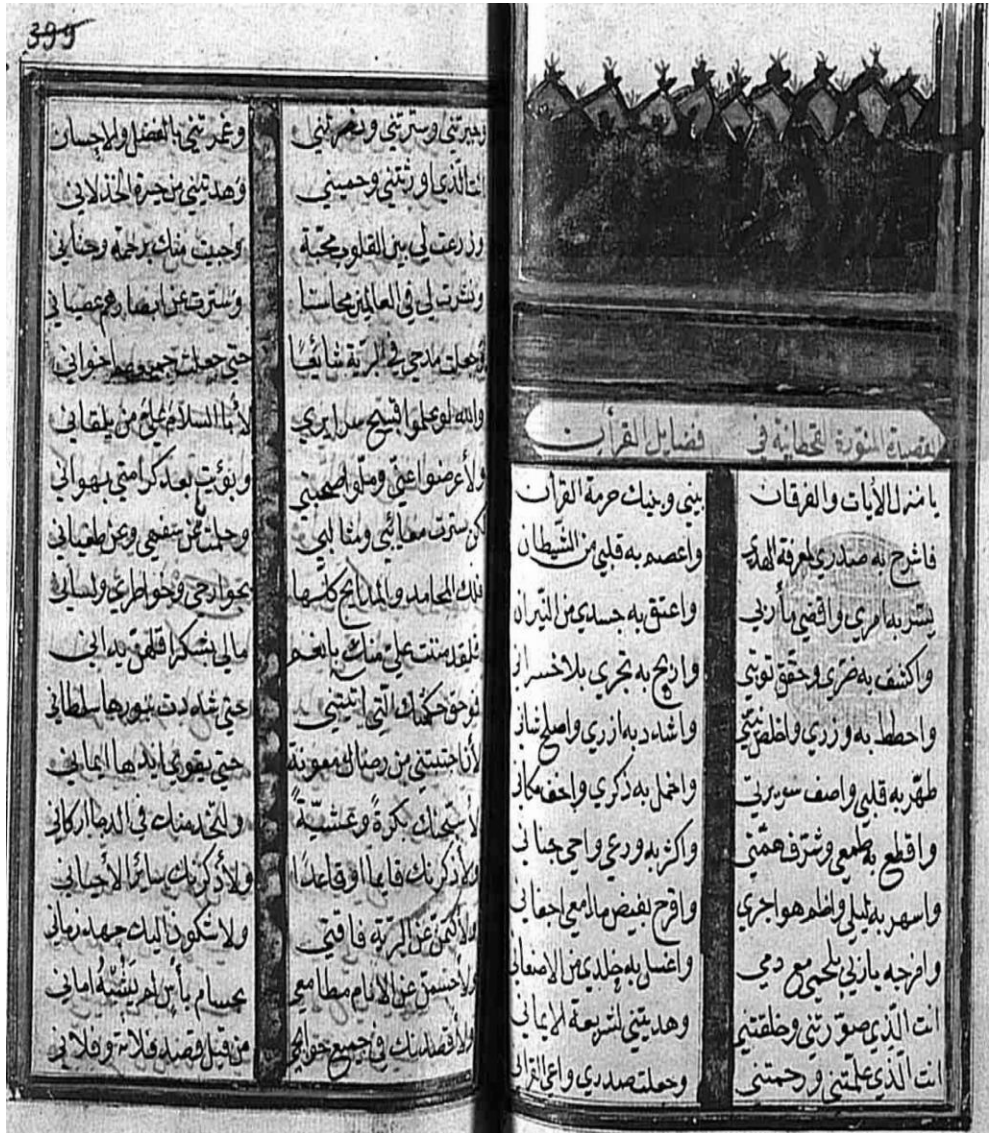 399
القصيدة المنورة القحطانية في فضايل القرأن
يا منزل الأيات والفرقان بيني وبينك حرمة القرأن
فاشرح به صدري لمعرفة الهدي واعصم به قلبي من الشيطان
يسّر به امري واقضي مأربي واعتق به جسدي من النيران
واكشف به ضري وحقق توبتي واربح به تجري بلا خسراني
واحطط به وزري واخلص نيتي واشدد به ازري واصلح شاني
طهّر به قلبي واصف سريرتي واخمل به ذكري واحف مكاني
واقطع به طمعي وشرّف همّتي واكثر به ورعي واحي جناني
واسهر به ليلي واظم هواجري واقرح بفيض مدامعي اجفاني
وامزجه يا ربي بلحمي مع دمي واغسل به خلدي من الاضغاني
انت الّذي صوّرتني وخلقتني وهديتني لشريعة الايماني
انت الّذي علّمتني ورحمتني وجعلت صدري واعي القراني
وجبرتني وسترتني ونصرتني وغمرتني بالفضل والاحسان
انت الّذي اويتني وحميتني وهديتني من حيرة الخذلاني
وزرعت لي بين القلوب محبّة وحبيت منك برحمة وحناني
ونشرت لي في العالمين محاسنا وسترت عن ابصارهم عصياني
وجعلت مدحي في البريّة شائعًا حتي جعلت جميعهم اخواني
والله لو علموا قبيح سرايري لأبا السلام عليّ من يلقاني
ولأعرضوا عنّي وملّوا صحبتي وبؤت بعد كرامتي بهواني
لكن سترت معائبي ومثالبي وحلمت عن سقمي وعن طغياني
فلك المحامد والمدايح كلّها بجوارحي وخواطري ولساني
فلقد مننت عليّ منك بانعم مالي بشكر اقلهن يداني
فوحق حكمتك التي اتيتني حتي شددت بنورها سلطاني
لأن اجتبتني من رضاك معونة حتي يقوي ايدها ايماني
لأسبّحنك بكرةً وعشيّةً ولتخدمنك في الدجا اركاني
ولأذكرنك قايما او قاعدًا ولأذكرنك سائر الأحياني
ولأكتمن عن البريّة فاقتي ولاشكون اليك جهد زماني
ولاحسمن عن الانام مطامعي بحسام يأس لم يشبه اماني
ولأقصدنك في جميع حوائجي من قبل قصد فلانة وفلاني